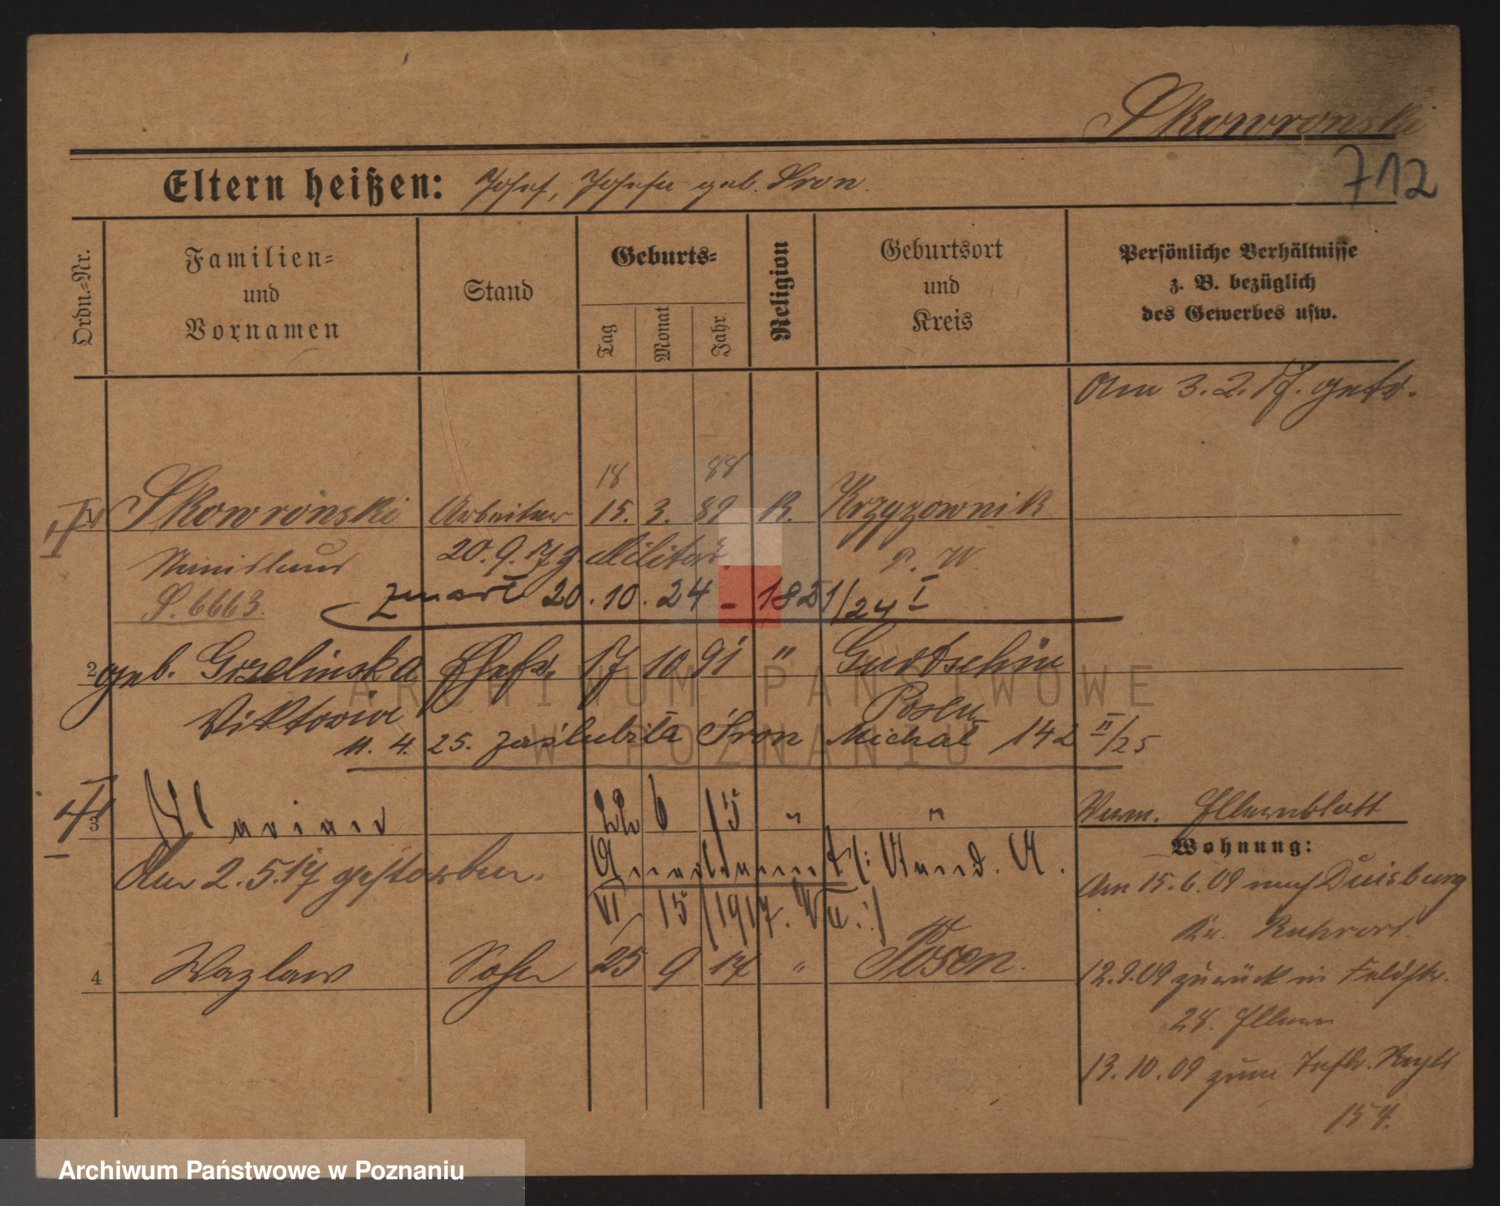 Skowronski
712
Eltern heißen: Josef, Josefa geb. Sron.
Ordn.-Nr.
Familien-
und
Vornamen
Stand
Geburts-
Tag
Monat
Jahr
Religion
Geburtsort
und
Kreis
Persönliche Verhältnisse
z. B. bezüglich
des Gewerbes usw.
Am 3.2.17. getr.
18 88
1 Skowronski Arbeiter 15. 3. 89 K. Krzyzownik
Stanislaus 20.9.17 z. Militär P. W.
S. 6663.
zmarł 20.10.24 - 1821/24 I
2 geb. Grzelinska Ehefr. 17 10 91 " Gurtschin
Viktoria Posen
11. 4. 25. zaślubiła Sron Michał 142 II/25
3 Marian 22 6 15 " "
Verm. Elternblatt
Wohnung:
Am 2.5.17 gestorben.
/: Stand. A.
VI 15/1917. :/
Am 15.6.09 nach Duisburg
Kr. Ruhrort.
4 Wazlaw Sohn 25 9 17 " Posen.
12.9.09 zurück in Feldstr.
28. Eltern
13.10.09 zum Inftr. Regt
154.
ARCHIWUM PAŃSTWOWE
W POZNANIU
Archiwum Państwowe w Poznaniu